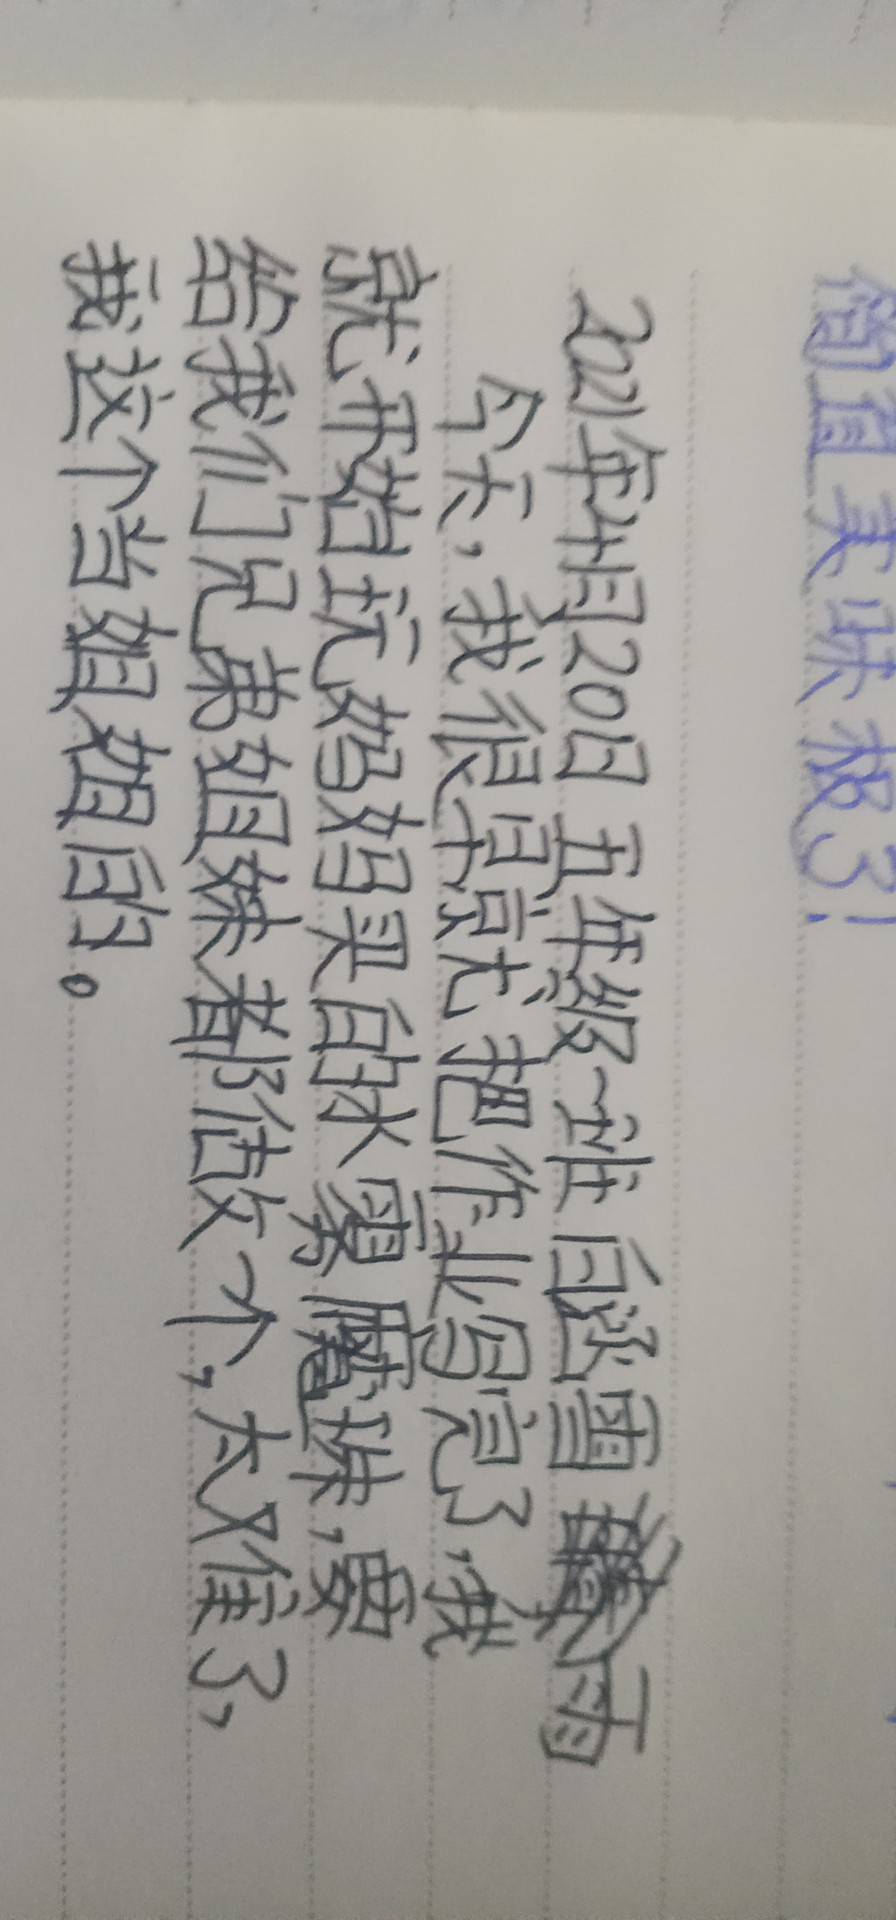 简直美味极了!
2021年4月20日 五年级一班 白涵雪 雨
今天,我很早就把作业写完了,我
就开始玩妈妈买的水雾魔珠,要
给我们兄弟姐妹都做个,太难了,
我这个当姐姐的。